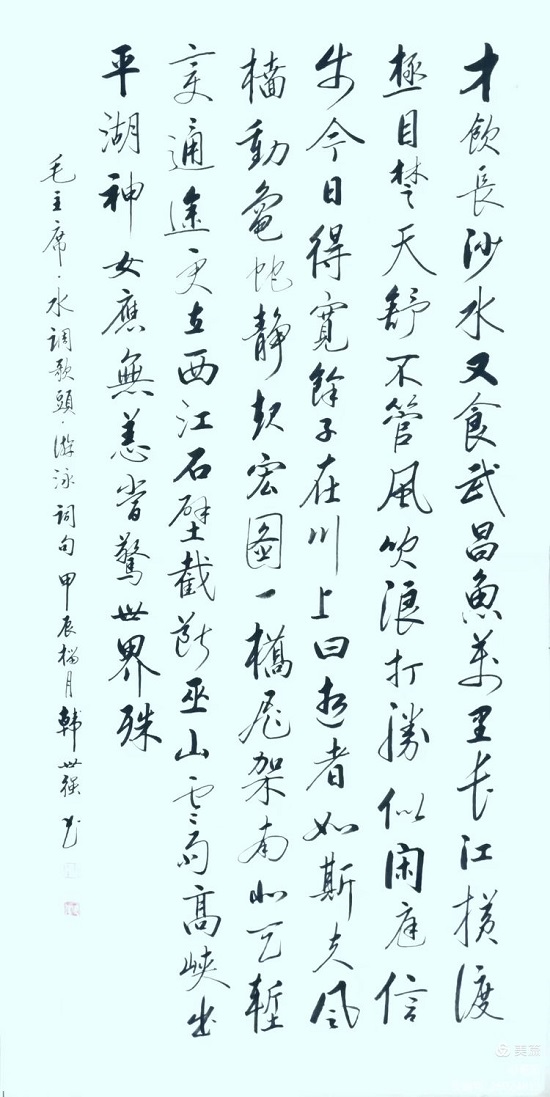 才飲長沙水又食武昌魚萬里长江橫渡
極目楚天舒不管風吹浪打勝似闲庭信
步今日得寬餘子在川上曰逝者如斯夫风
樯動龜蛇靜起宏圖一橋飛架南北天塹
変通途更立西江石壁截断巫山雲雨高峽出
平湖神女應無恙當驚世界殊
毛主席·水调歌頭·游泳词句甲辰榴月韓世强书
美篇